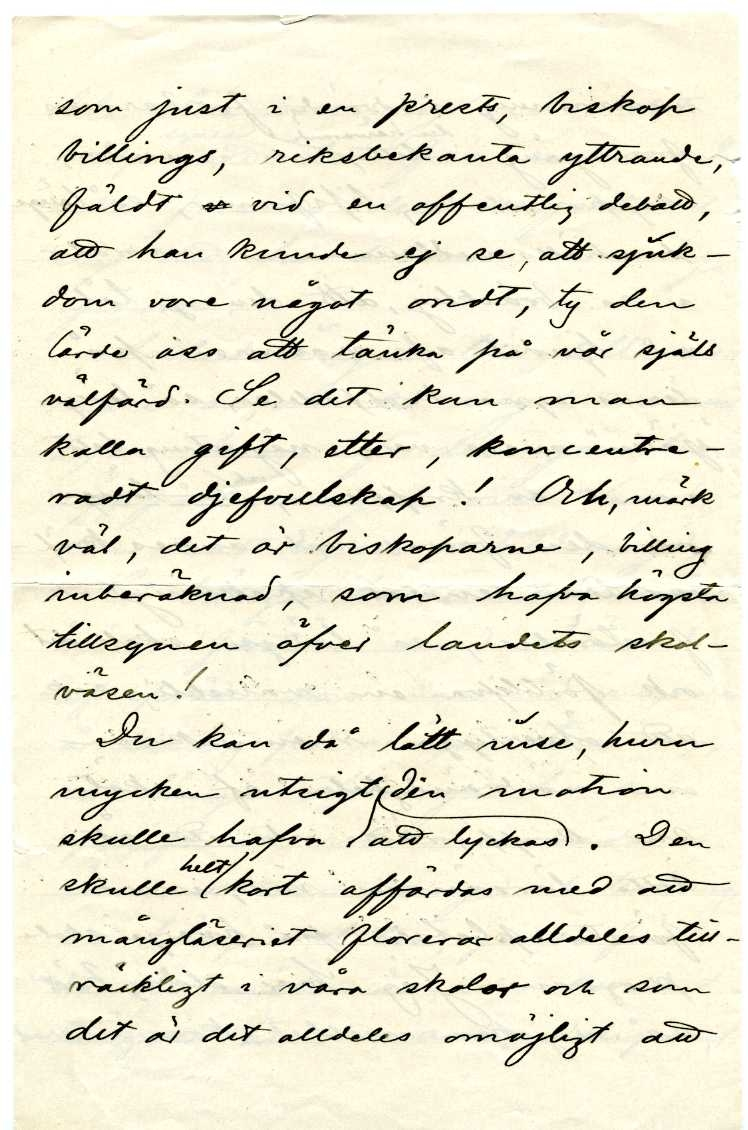 som just i en prests, biskop
billings, riksbekanta yttrande,
fäldt vid en offentlig debatt,
att han kunde ej se, att sjuk-
dom vore något ondt, ty den
lärde oss att tänka på vår själs
välfärd. Se det kan man
kalla gift, etter, koncentre-
radt djefvulskap! Och, märk
väl, det är biskoparne, billing
inberäknad, som hafva högsta
tillsynen öfver landets skol-
väsen!
Du kan då lätt inse, huru
mycken utsigt din motion
skulle hafva att lyckas. Den
skulle helt kort affärdas med att
mångläseriet florerar alldeles till-
räckligt i våra skolor och som
det är det alldeles omöjligt att